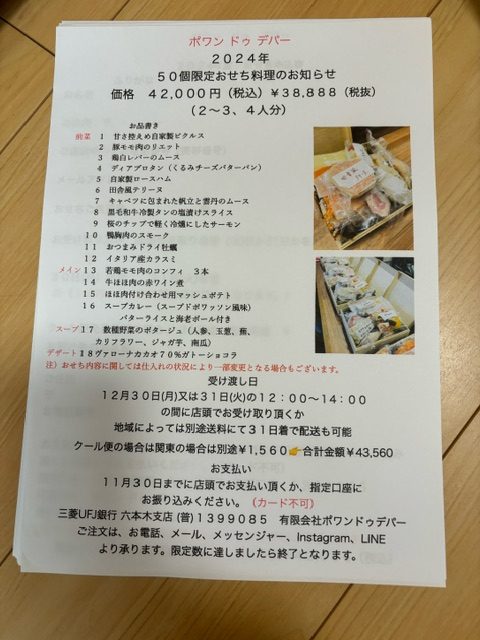 ポワン ドゥ デパー
2024年
50個限定おせち料理のお知らせ
価格 42,000円（税込）¥38,888（税抜）
（2〜3、4人分）
お品書き
前菜 1 甘さ控えめ自家製ピクルス
2 豚モモ肉のリエット
3 鶏白レバーのムース
4 ディアブロタン（くるみチーズバターパン）
5 自家製ロースハム
6 田舎風テリーヌ
7 キャベツに包まれた帆立と雲丹のムース
8 黒毛和牛冷製タンの塩漬けスライス
9 桜のチップで軽く冷燻にしたサーモン
10 鴨胸肉のスモーク
11 おつまみドライ牡蠣
12 イタリア産カラスミ
メイン 13 若鶏モモ肉のコンフィ 3本
14 牛ほほ肉の赤ワイン煮
15 ほほ肉付け合わせ用マッシュポテト
16 スープカレー（スープドポワッソン風味）
バターライスと海老ボール付き
スープ 17 数種野菜のポタージュ（人参、玉葱、蕪、
カリフラワー、ジャガ芋、南瓜）
デザート 18 ヴァローナカカオ70％ガトーショコラ
注）おせち内容に関しては仕入れの状況により一部変更となる場合もございます。
受け渡し日
12月30日(月)又は31日(火)の12：00〜14：00
の間に店頭でお受け取り頂くか
地域によっては別途送料にて31日着で配送も可能
クール便の場合は関東の場合は別途¥1,560👉合計金額¥43,560
お支払い
11月30日までに店頭でお支払い頂くか、指定口座に
お振り込みください。（カード不可）
三菱UFJ銀行 六本木支店 (普)1399085 有限会社ポワンドゥデパー
ご注文は、お電話、メール、メッセンジャー、Instagram、LINE
より承ります。限定数に達しましたら終了となります。